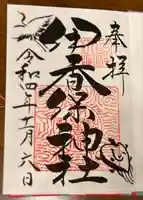 奉拝
伊香保神社
令和四年十一月六日